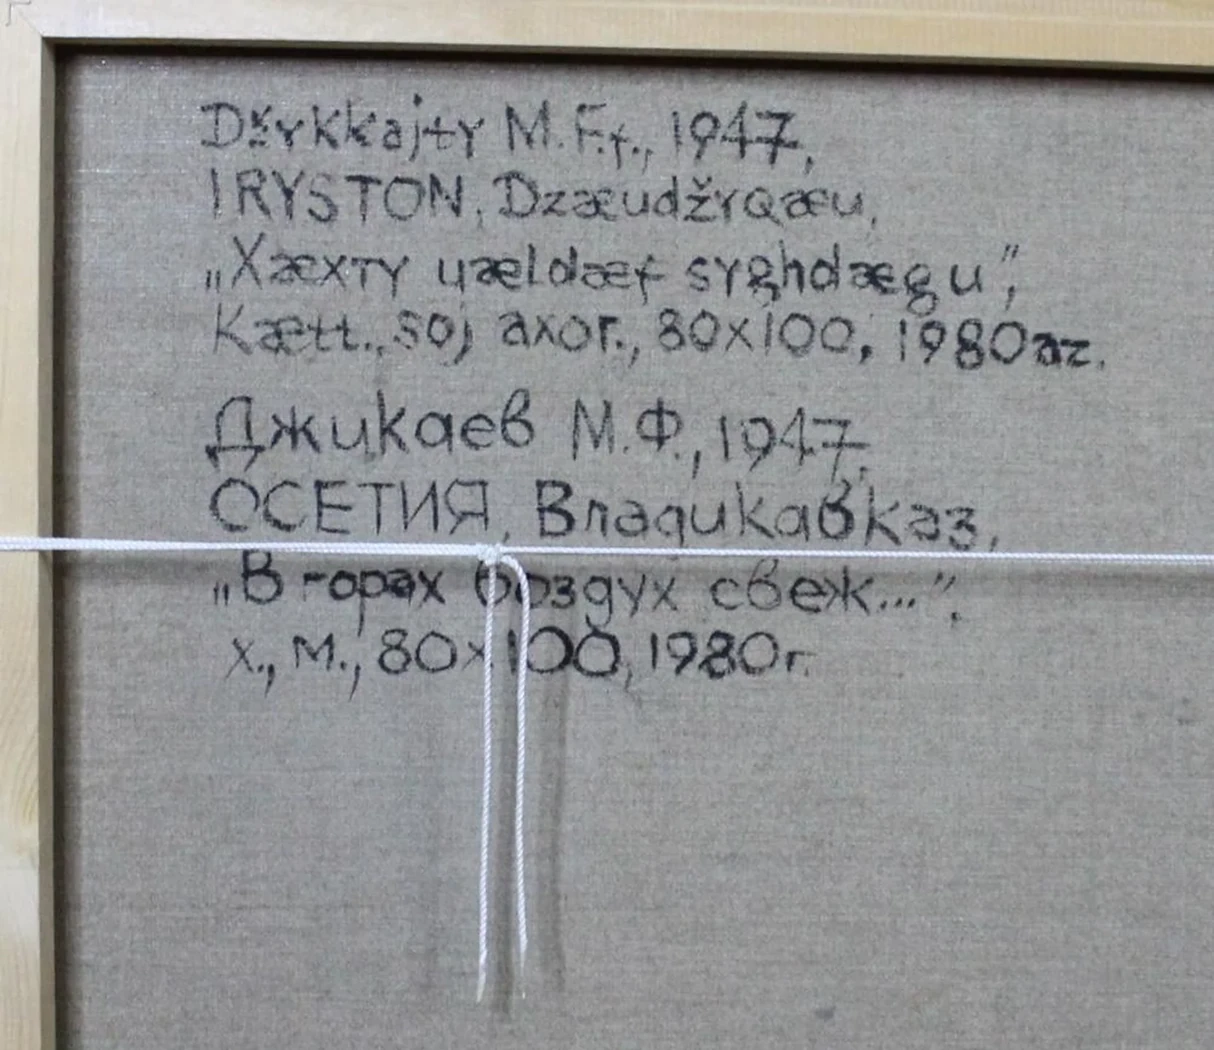 Džykkajty M.F.f., 1947,
IRYSTON, Dzæudžyqæu,
„Xæxty uældæf syghdæg u”,
Kætt., soj axor., 80x100, 1980 az.
Джикаев М.Ф., 1947,
ОСЕТИЯ, Владикавказ,
„В горах воздух свеж...”.
х., м., 80×100, 1980г.